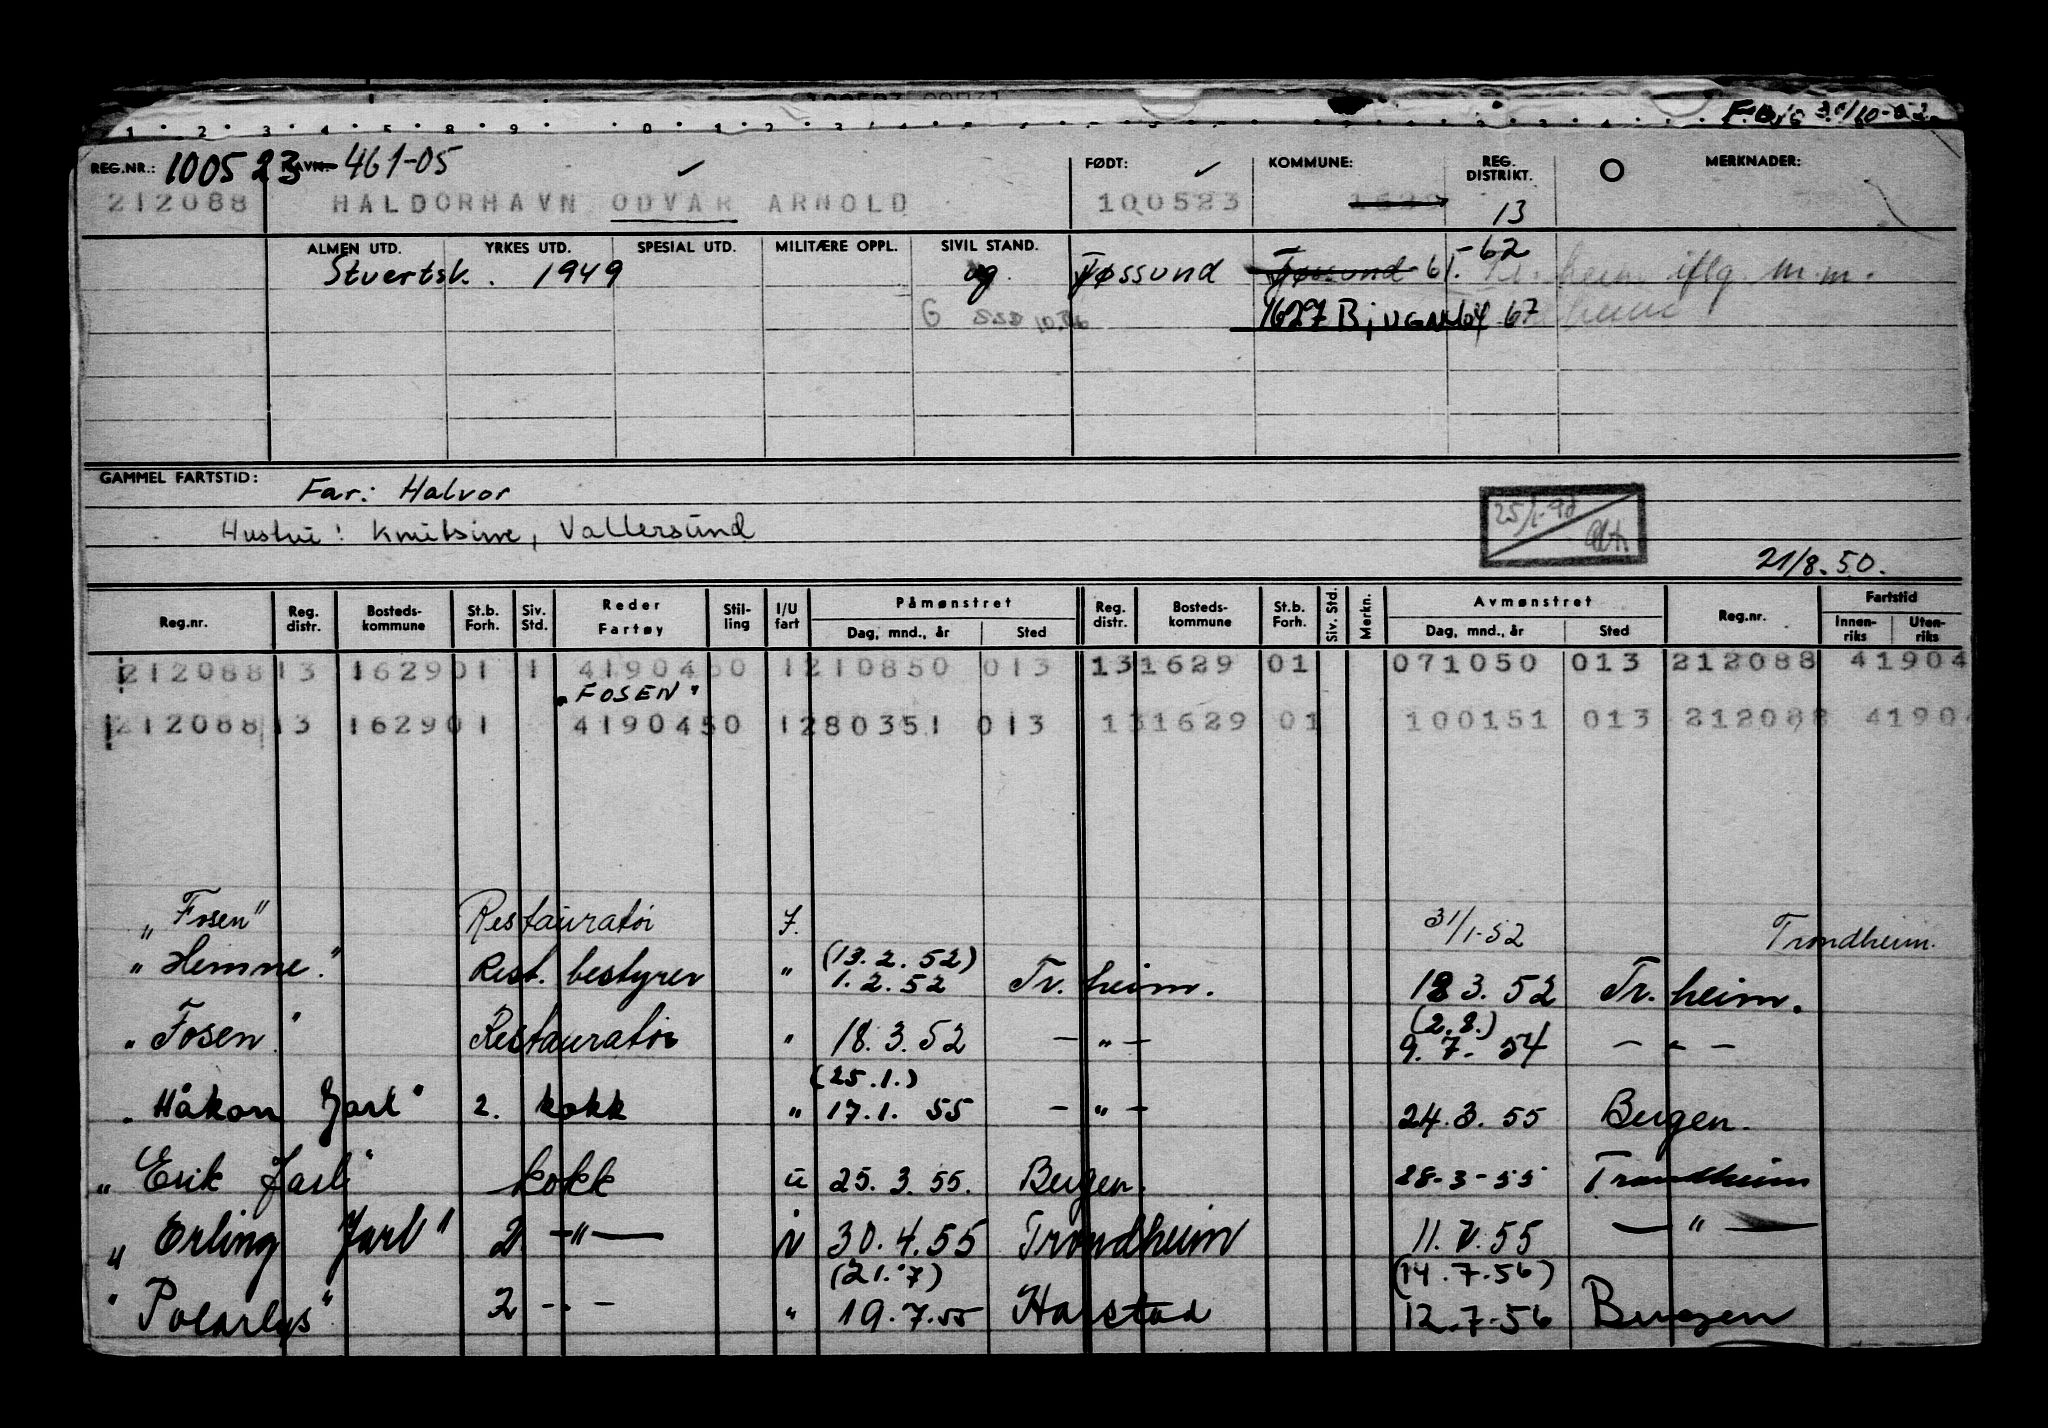 REG.NR.: 100523 NAVN: 461-05 ✓ FØDT: ✓ KOMMUNE: REG. DISTRIKT. MERKNADER:
212088 HALDORHAVN ODVAR ARNOLD 100523 13
ALMEN UTD. YRKES UTD. SPESIAL UTD. MILITÆRE OPPL. SIVIL STAND.
Stuertsk. 1949 ug. Jøssund Jøssund 61-62 iflg m.m.
G 1627 BJUGN 67
GAMMEL FARTSTID: Far: Halvor
Hustru: Knutsine, Vallersund
21/8.50.
Reg.nr. Reg. distr. Bosteds-kommune St.b. Forh. Siv. Std. Reder Fartøy Stil-ling I/U fart Påmønstret Dag, mnd., år Sted Reg. distr. Bosteds-kommune St.b. Forh. Siv. Std. Merkn. Avmønstret Dag, mnd., år Sted Reg.nr. Fartstid Innen-riks Uten-riks
212088 13 1629 01 1 4190450 1 210850 013 13 1629 01 071050 013 212088 41904
"FOSEN"
212088 13 1629 01 4190450 1 280351 013 13 1629 01 100151 013 212088 4190
"Fosen" Restauratør I. 31/1-52 Trondheim.
(13.2.52)
"Hemne." Rest. bestyrer " 1.2.52 Tr.heim. 18 3. 52 Tr.heim.
(2.8.)
"Fosen." Restauratør " 18.3.52 — " — 9. 7. 54 — " —
(25.1.)
"Håkon Jarl" 2. kokk " 17.1. 55 — " — 24.3.55 Bergen.
"Erik Jarl" kokk u 25.3.55. Bergen. 28-3-55 Trondheim
"Erling Jarl" 2 —"— i 30.4.55 Trondheim 11.V.55 — " —
(21.7) (14.7.56)
"Polarlys" 2 —"— " 19.7.55 Harstad 12.7-56 Bergen